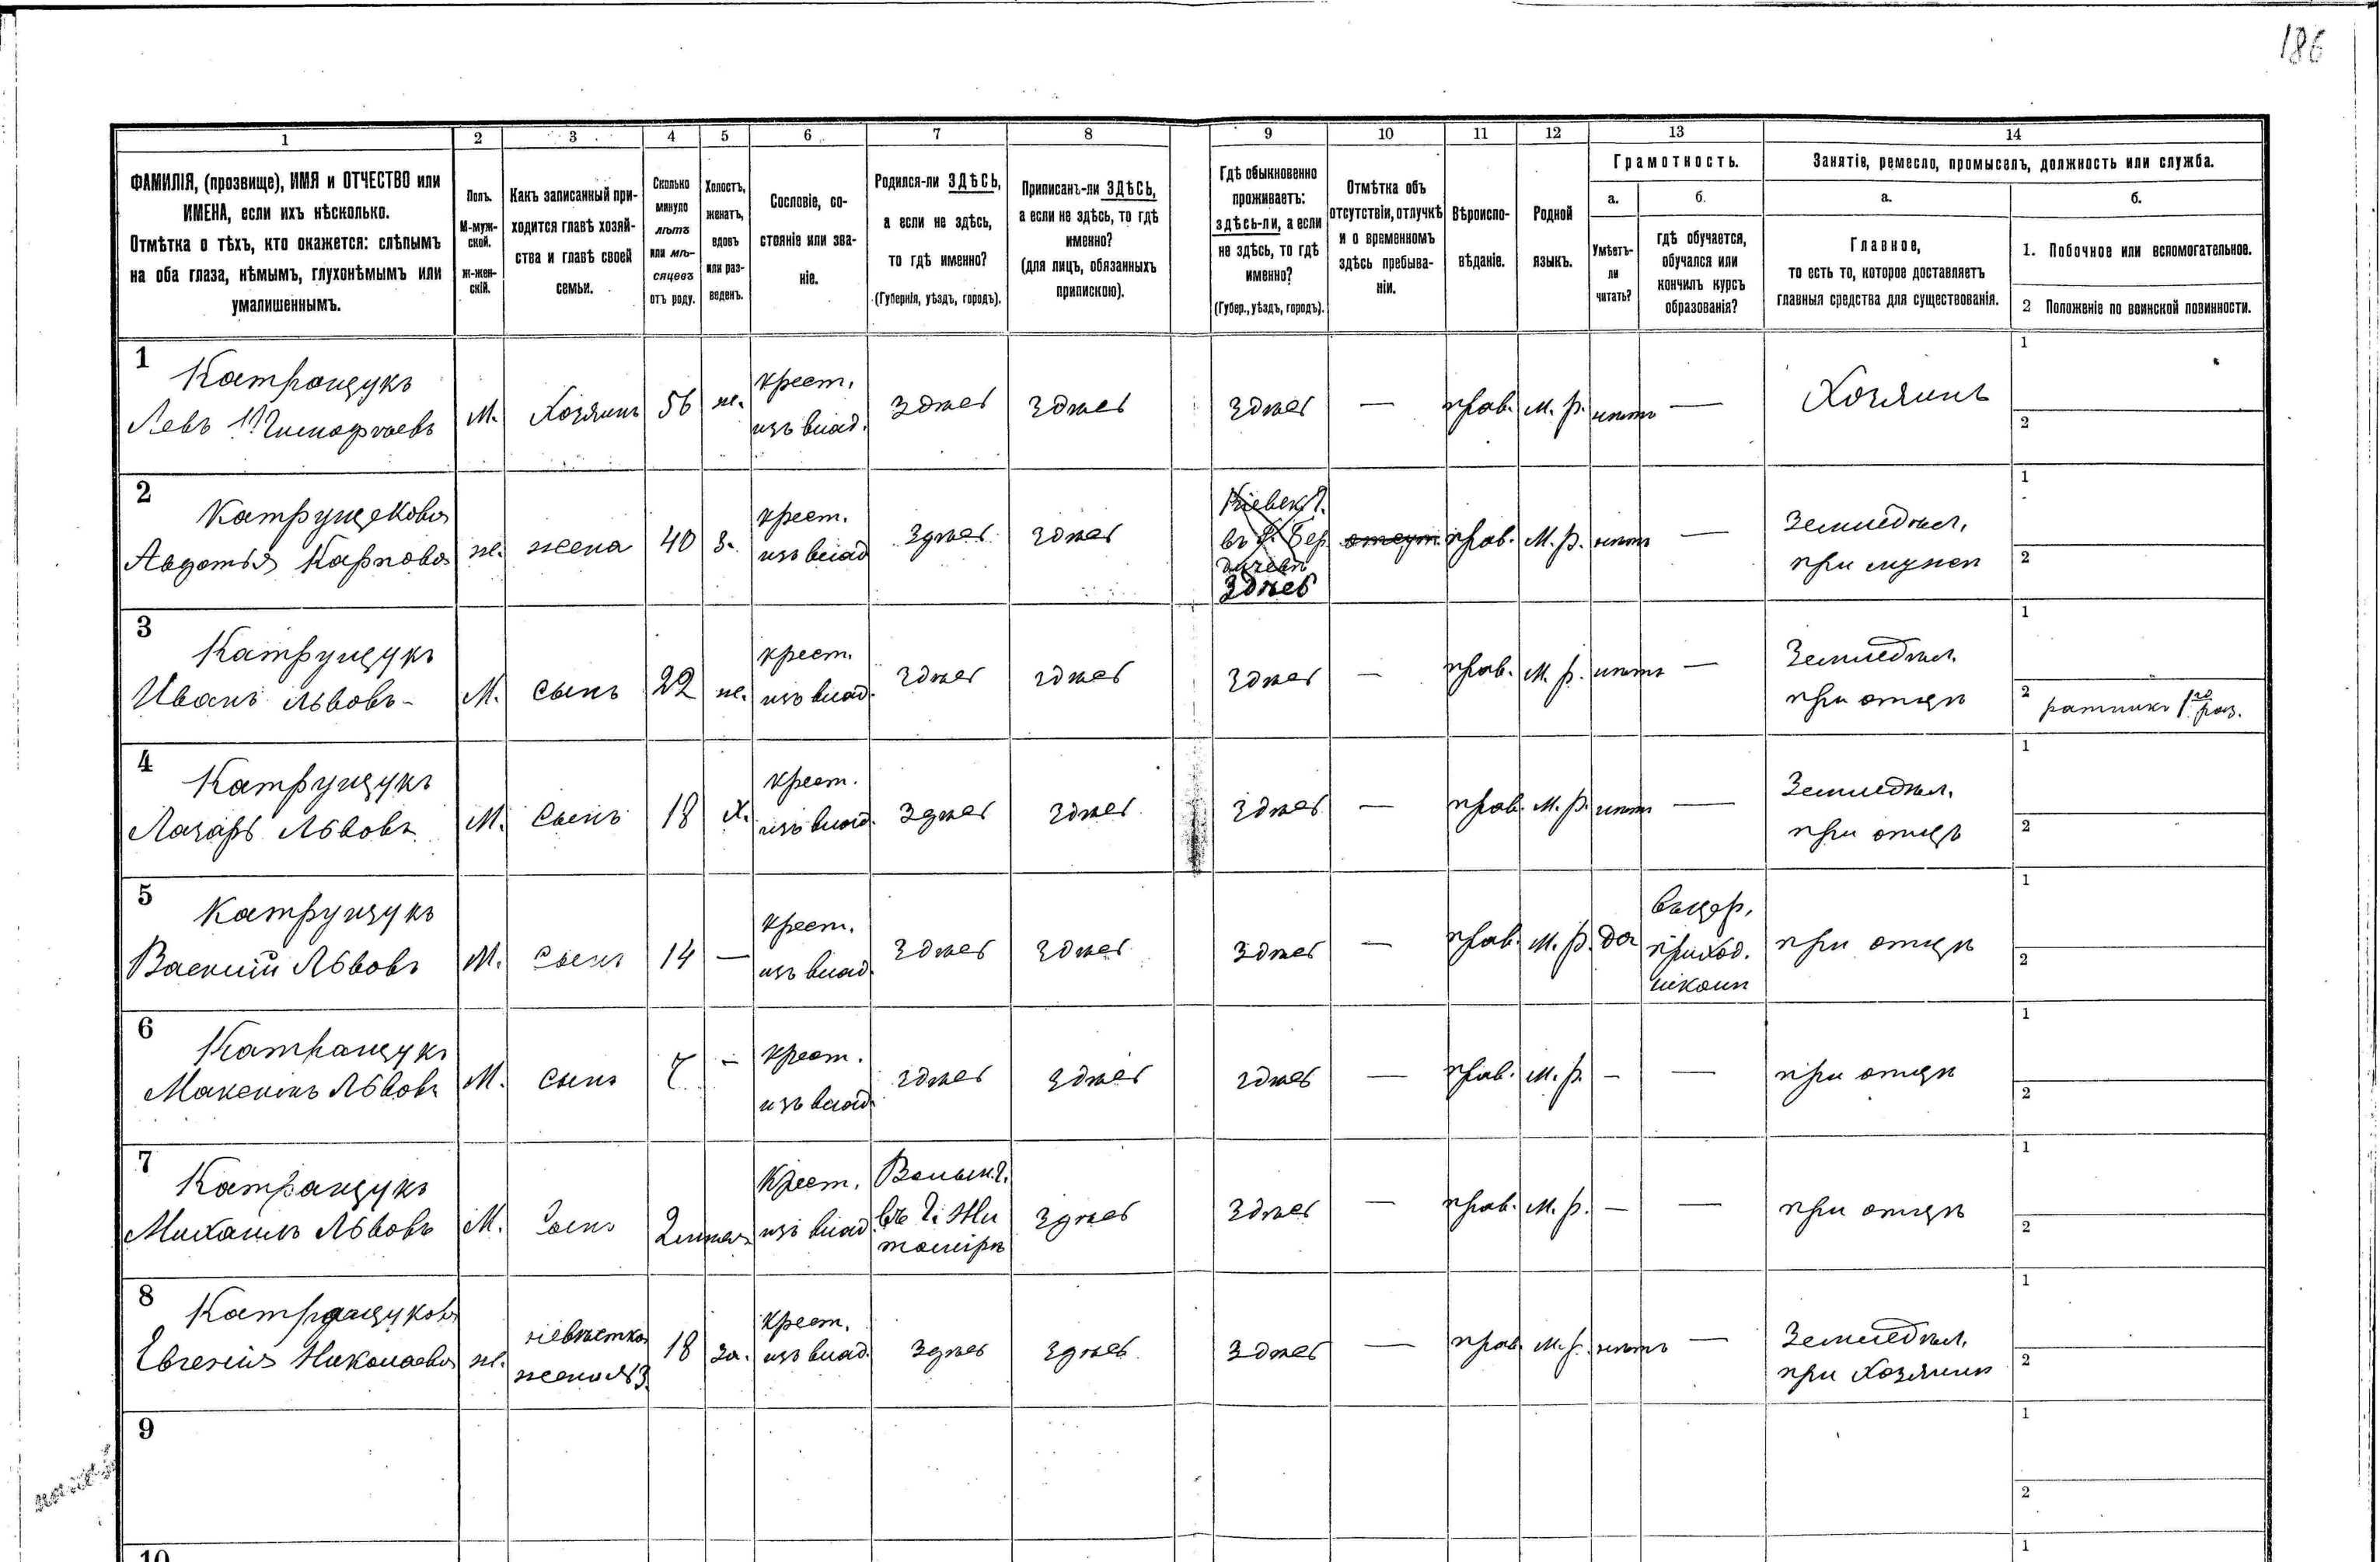 186
1 2 3 4 5 6 7 8 9 10 11 12 13 14
ФАМИЛІЯ, (прозвище), ИМЯ и ОТЧЕСТВО или
ИМЕНА, если ихъ нѣсколько.
Отмѣтка о тѣхъ, кто окажется: слѣпымъ
на оба глаза, нѣмымъ, глухонѣмымъ или
умалишеннымъ.
Полъ.
М-муж-
ской.
Ж-жен-
скій.
Какъ записанный при-
ходится главѣ хозяй-
ства и главѣ своей
семьи.
Сколько
минуло
лѣтъ
или мѣ-
сяцевъ
отъ роду.
Холостъ,
женатъ,
вдовъ
или раз-
веденъ.
Сословіе, со-
стояніе или зва-
ніе.
Родился-ли ЗДѢСЬ,
а если не здѣсь,
то гдѣ именно?
(Губернія, уѣздъ, городъ).
Приписанъ-ли ЗДѢСЬ,
а если не здѣсь, то гдѣ
именно?
(для лицъ, обязанныхъ
припискою).
Гдѣ обыкновенно
проживаетъ:
здѣсь-ли, а если
не здѣсь, то гдѣ
именно?
(Губер., уѣздъ, городъ).
Отмѣтка объ
отсутствіи, отлучкѣ
и о временномъ
здѣсь пребыва-
ніи.
Вѣроиспо-
вѣданіе.
Родной
языкъ.
Грамотность.
а.
Умѣетъ-
ли
читать?
б.
гдѣ обучается,
обучался или
кончилъ курсъ
образованія?
Занятіе, ремесло, промыселъ, должность или служба.
а.
Главное,
то есть то, которое доставляетъ
главныя средства для существованія.
б.
1. Побочное или вспомогательное.
2 Положеніе по воинской повинности.
1
Катращукъ
Левъ Тимофѣевъ
М.
Хозяинъ
56
ж.
крест.
изъ влад.
Здѣсь
Здѣсь
Здѣсь
—
прав.
М. р.
нѣтъ
—
Хозяинъ
1
2
2
Катрущукова
Авдотья Карпова
ж.
жена
40
з.
крест.
изъ влад.
Здѣсь
Здѣсь
Кіевск. г.
въ г. Бер
дичевѣ
Здѣсь
отсут.
прав.
М. р.
нѣтъ
—
Земледѣл.
при мужѣ
1
2
3
Катрущукъ
Иванъ Львовъ
М.
сынъ
22
ж.
крест.
изъ влад.
Здѣсь
Здѣсь
Здѣсь
—
прав.
М. р.
нѣтъ
—
Земледѣл.
при отцѣ
1
2 ратникъ 1го раз.
4
Катрущукъ
Лазарь Львовъ
М.
Сынъ
18
х.
крест.
изъ влад.
Здѣсь
Здѣсь
Здѣсь
—
прав.
М. р.
нѣтъ
—
Земледѣл.
при отцѣ
1
2
5
Катрущукъ
Василій Львовъ
М.
Сынъ
14
—
крест.
изъ влад.
Здѣсь
Здѣсь
Здѣсь
—
прав.
М. р.
да
въ цер.
приход.
школѣ
при отцѣ
1
2
6
Катращукъ
Максимъ Львовъ
М.
сынъ
7
—
крест.
изъ влад.
Здѣсь
Здѣсь
Здѣсь
—
прав.
М. р.
—
—
при отцѣ
1
2
7
Катращукъ
Михаилъ Львовъ
М.
Сынъ
крест.
изъ влад
Волын. г.
въ г. Жи
томірѣ
Здѣсь
Здѣсь
—
прав.
М. р.
—
—
при отцѣ
1
2
8
Катращукова
Евгенія Николаева
ж.
невѣстка
жена №3
18
за.
крест.
изъ влад.
Здѣсь
Здѣсь
Здѣсь
—
прав.
М. р.
нѣтъ
—
Земледѣл.
при Хозяинѣ
1
2
9
1
2
10
1